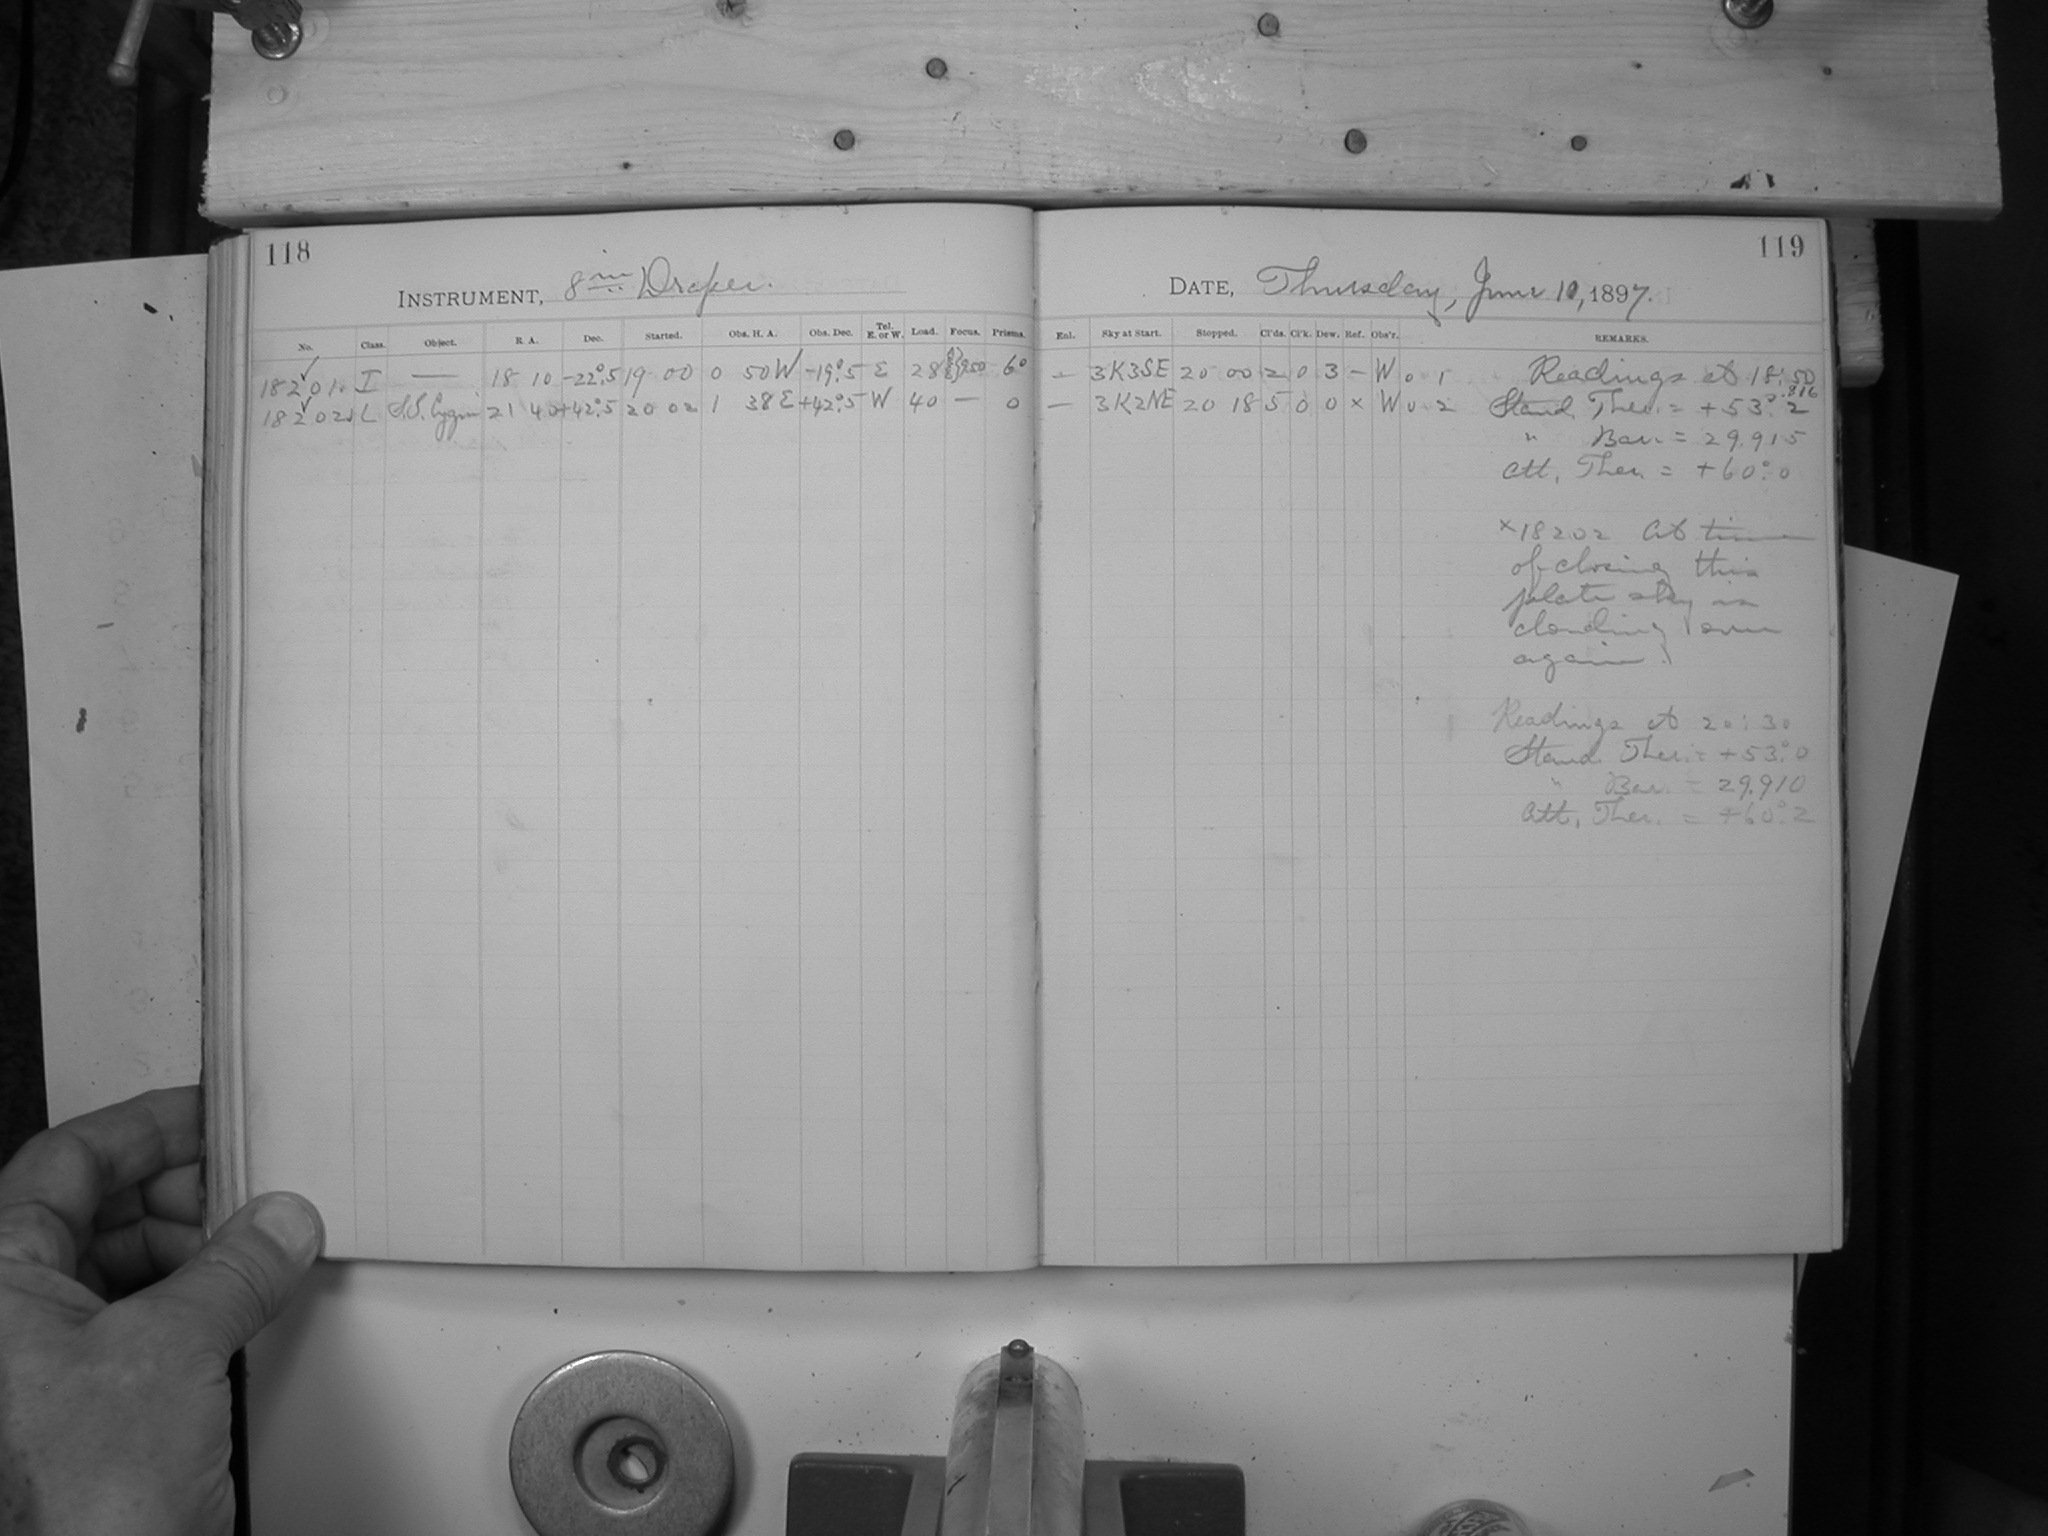 118
INSTRUMENT, 8 in Draper.
No. Class. Object. R. A. Dec. Started. Obs. H. A. Obs. Dec. Tel. E. or W. Load. Focus. Prisms.
18201 I — 18 10 -22°.5 19 00 0 50 W -19°.5 E 28 6°
18202 L S.S. Cygni 21 40 +42°.5 20 02 1 38 E +42°.5 W 40 — 0
119
DATE, Thursday, June 10, 1897.
Enl. Sky at Start. Stopped. Cl'ds. Cl'k. Dew. Ref. Obs'r. REMARKS.
— 3K3SE 20 00 2 0 3 — W 0 1 Readings at 18:50
— 3K2NE 20 18 5 0 0 x W 0 2 Stand. Ther. = +53°.2
.816
" Bar. = 29.915
Att. Ther. = +60°.0
x18202 At time
of closing this
plate sky is
clouding over
again.
Readings at 20:30
Stand. Ther. = +53°.0
" Bar. = 29.910
Att. Ther. = +60°.2